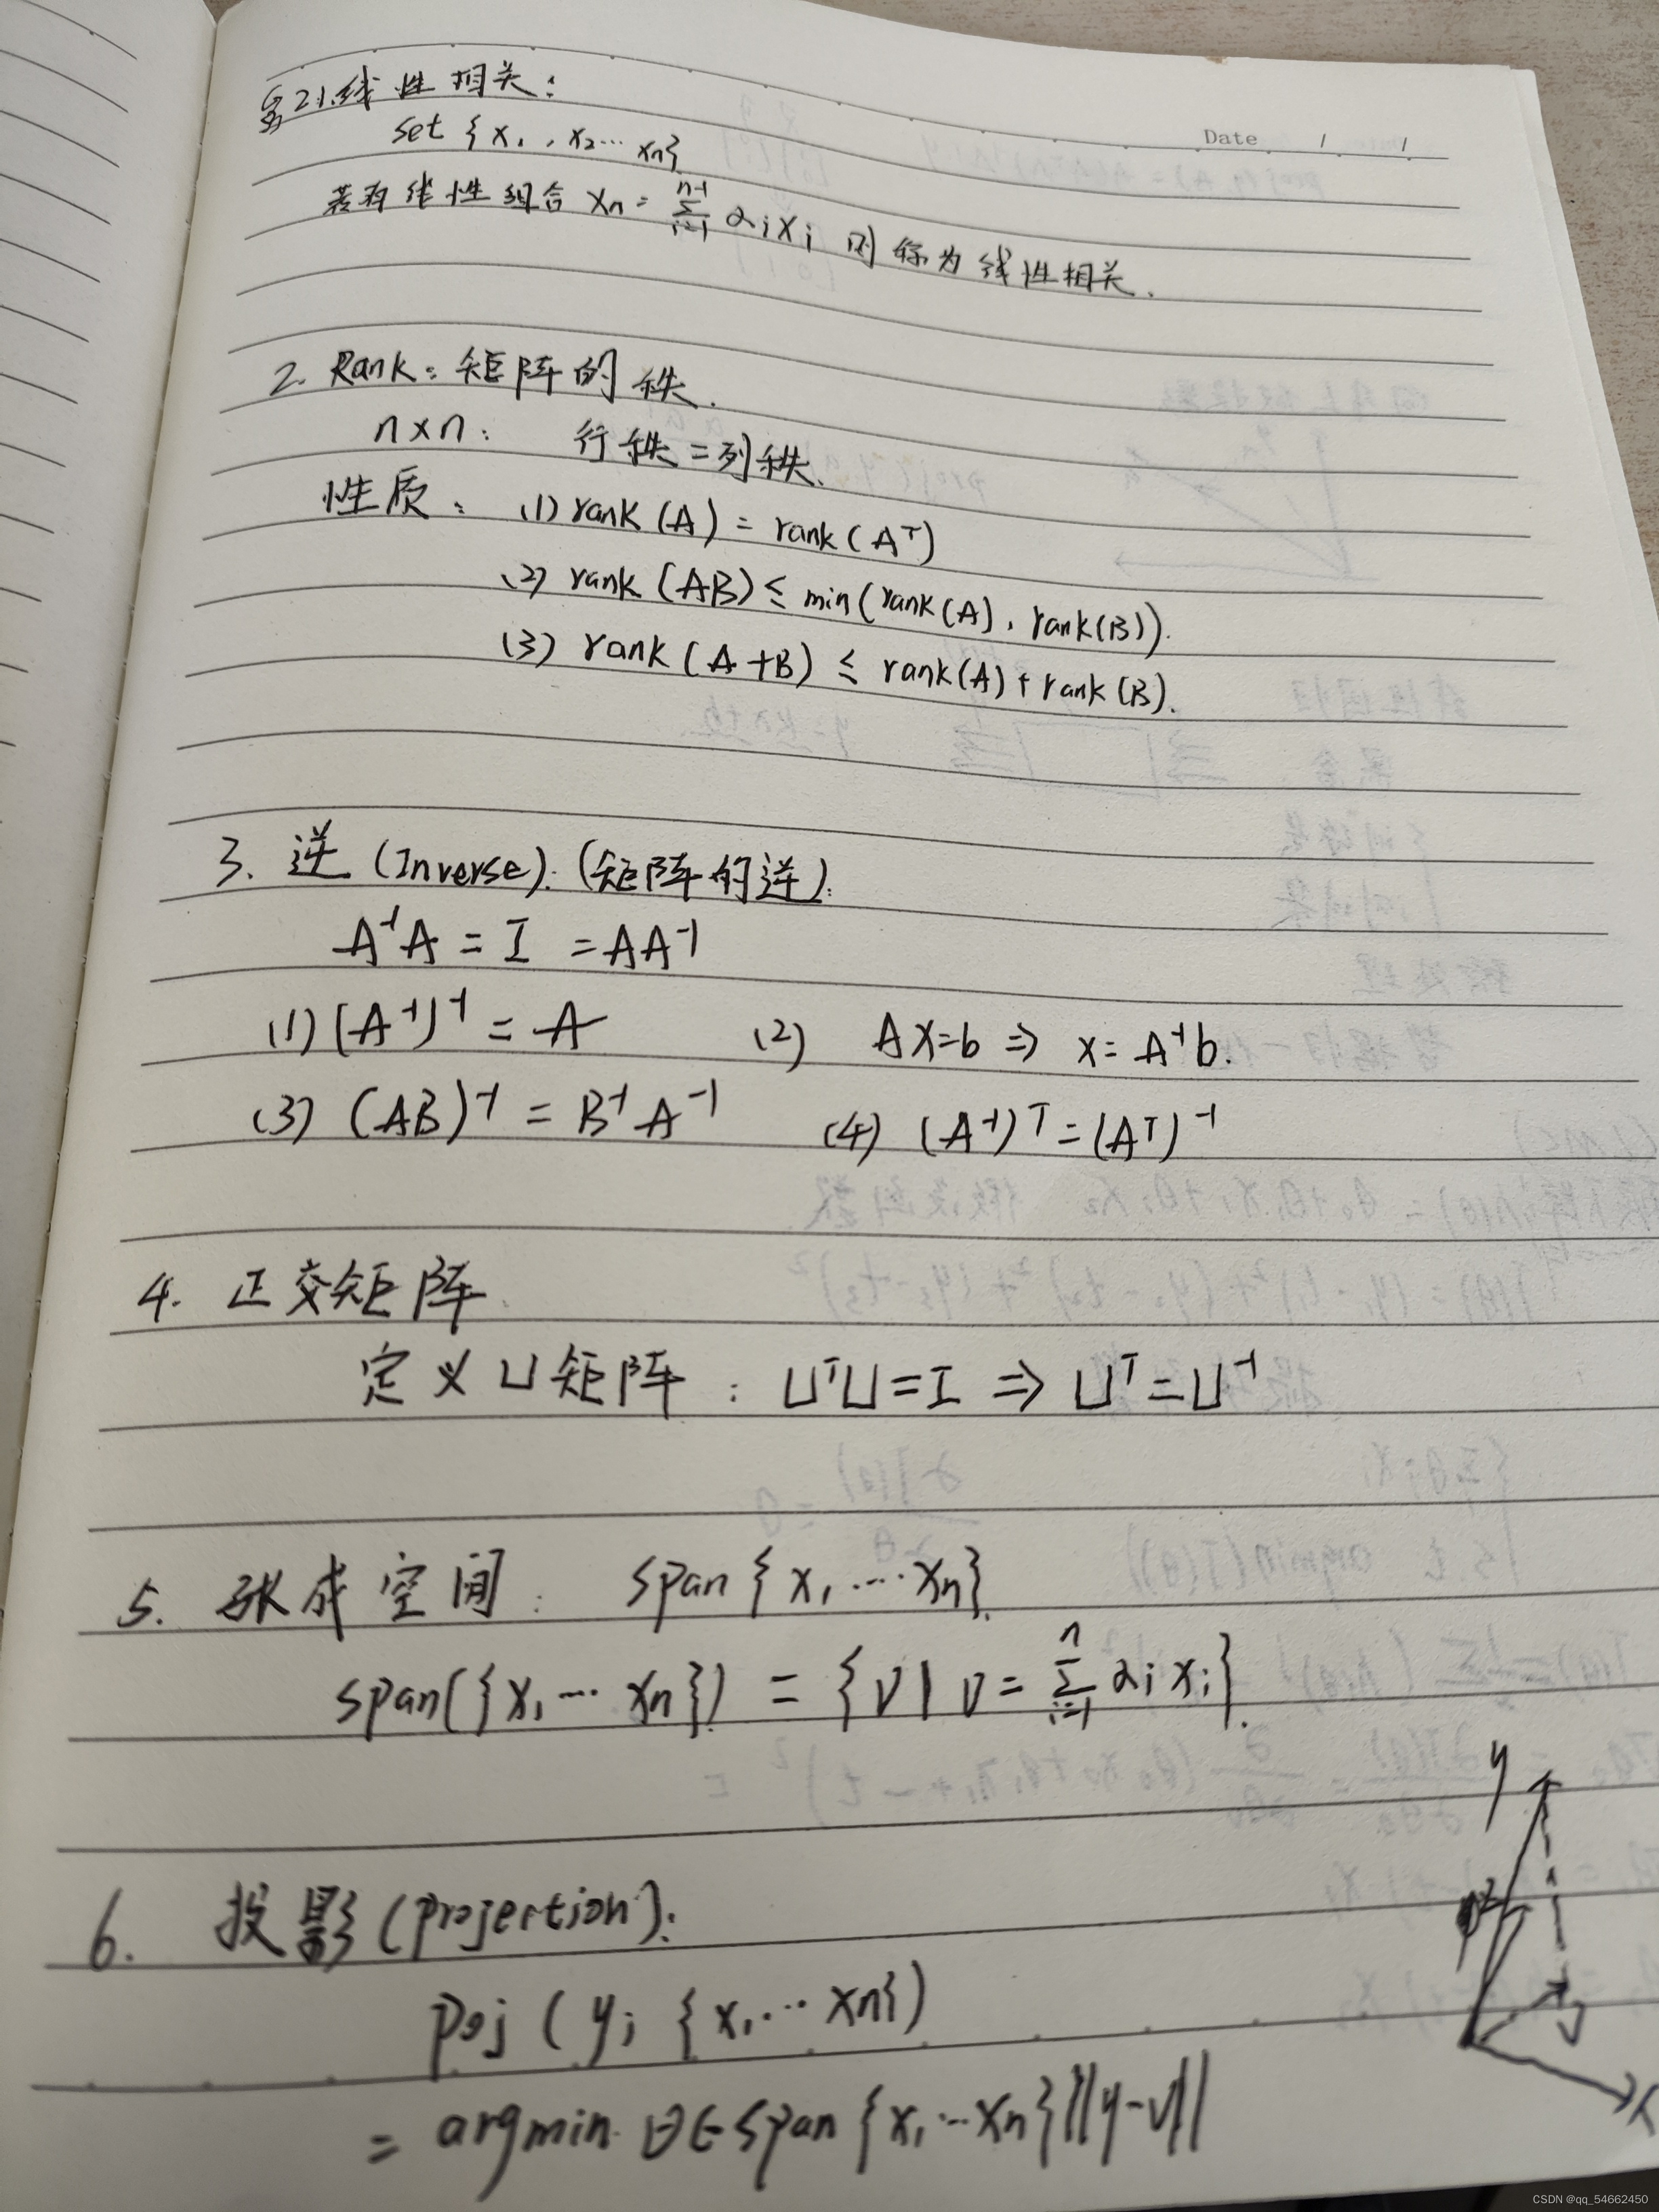 §21.线性相关:
Date / /
set {x₁, x₂… xₙ}
若有线性组合 xₙ = Σ_{i=1}^{n-1} αᵢxᵢ 则称为线性相关.
2. Rank: 矩阵的秩.
n×n: 行秩=列秩.
性质: (1) rank(A) = rank(Aᵀ)
(2) rank(AB) ≤ min(rank(A), rank(B)).
(3) rank(A+B) ≤ rank(A)+rank(B).
3. 逆 (Inverse): (矩阵的逆):
A⁻¹A = I = AA⁻¹
(1) (A⁻¹)⁻¹ = A (2) Ax=b ⇒ x= A⁻¹b.
(3) (AB)⁻¹ = B⁻¹A⁻¹ (4) (A⁻¹)ᵀ=(Aᵀ)⁻¹
4. 正交矩阵.
定义U矩阵: UᵀU=I ⇒ Uᵀ=U⁻¹
5. 张成空间: span{x₁…xₙ}.
span({x₁… xₙ}) = {v|v= Σ_{i=1}^{n} αᵢxᵢ}.
y
6. 投影(projection):
poj (y; {x₁…xₙ})
= argmin v∈span{x₁…xₙ}||y-v||
x
CSDN @qq_54662450